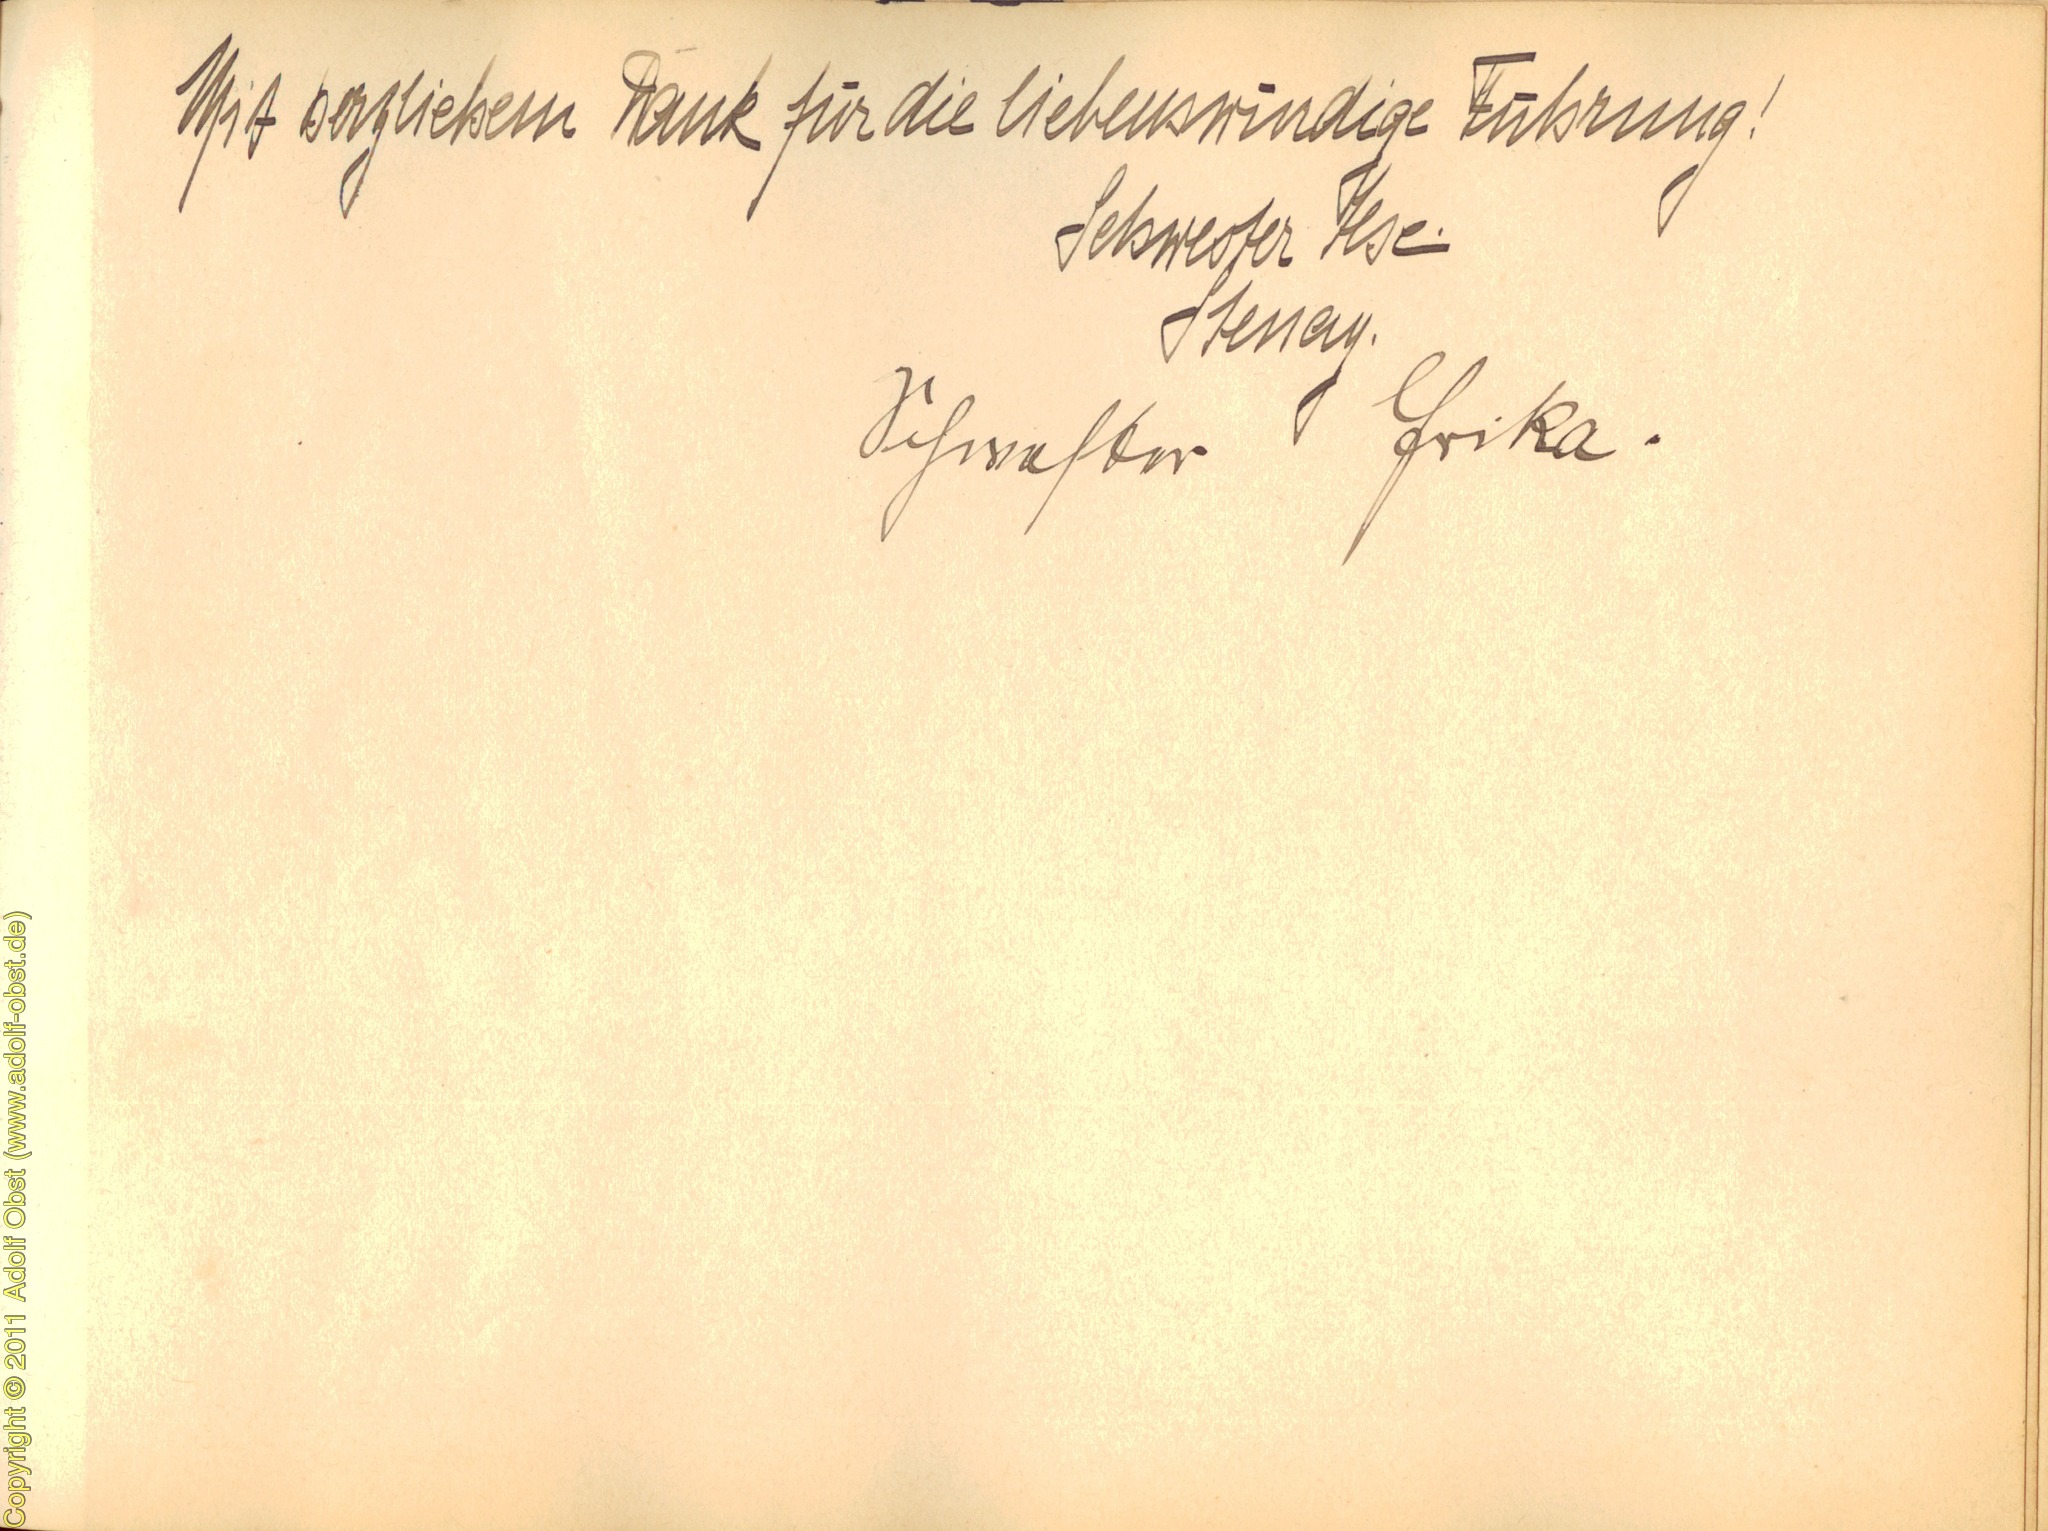 Mit herzlichem Dank für die liebenswürdige Führung!
Schwester Ilse.
Stenay.
Schwester Erika.
Copyright © 2011 Adolf Obst (www.adolf-obst.de)